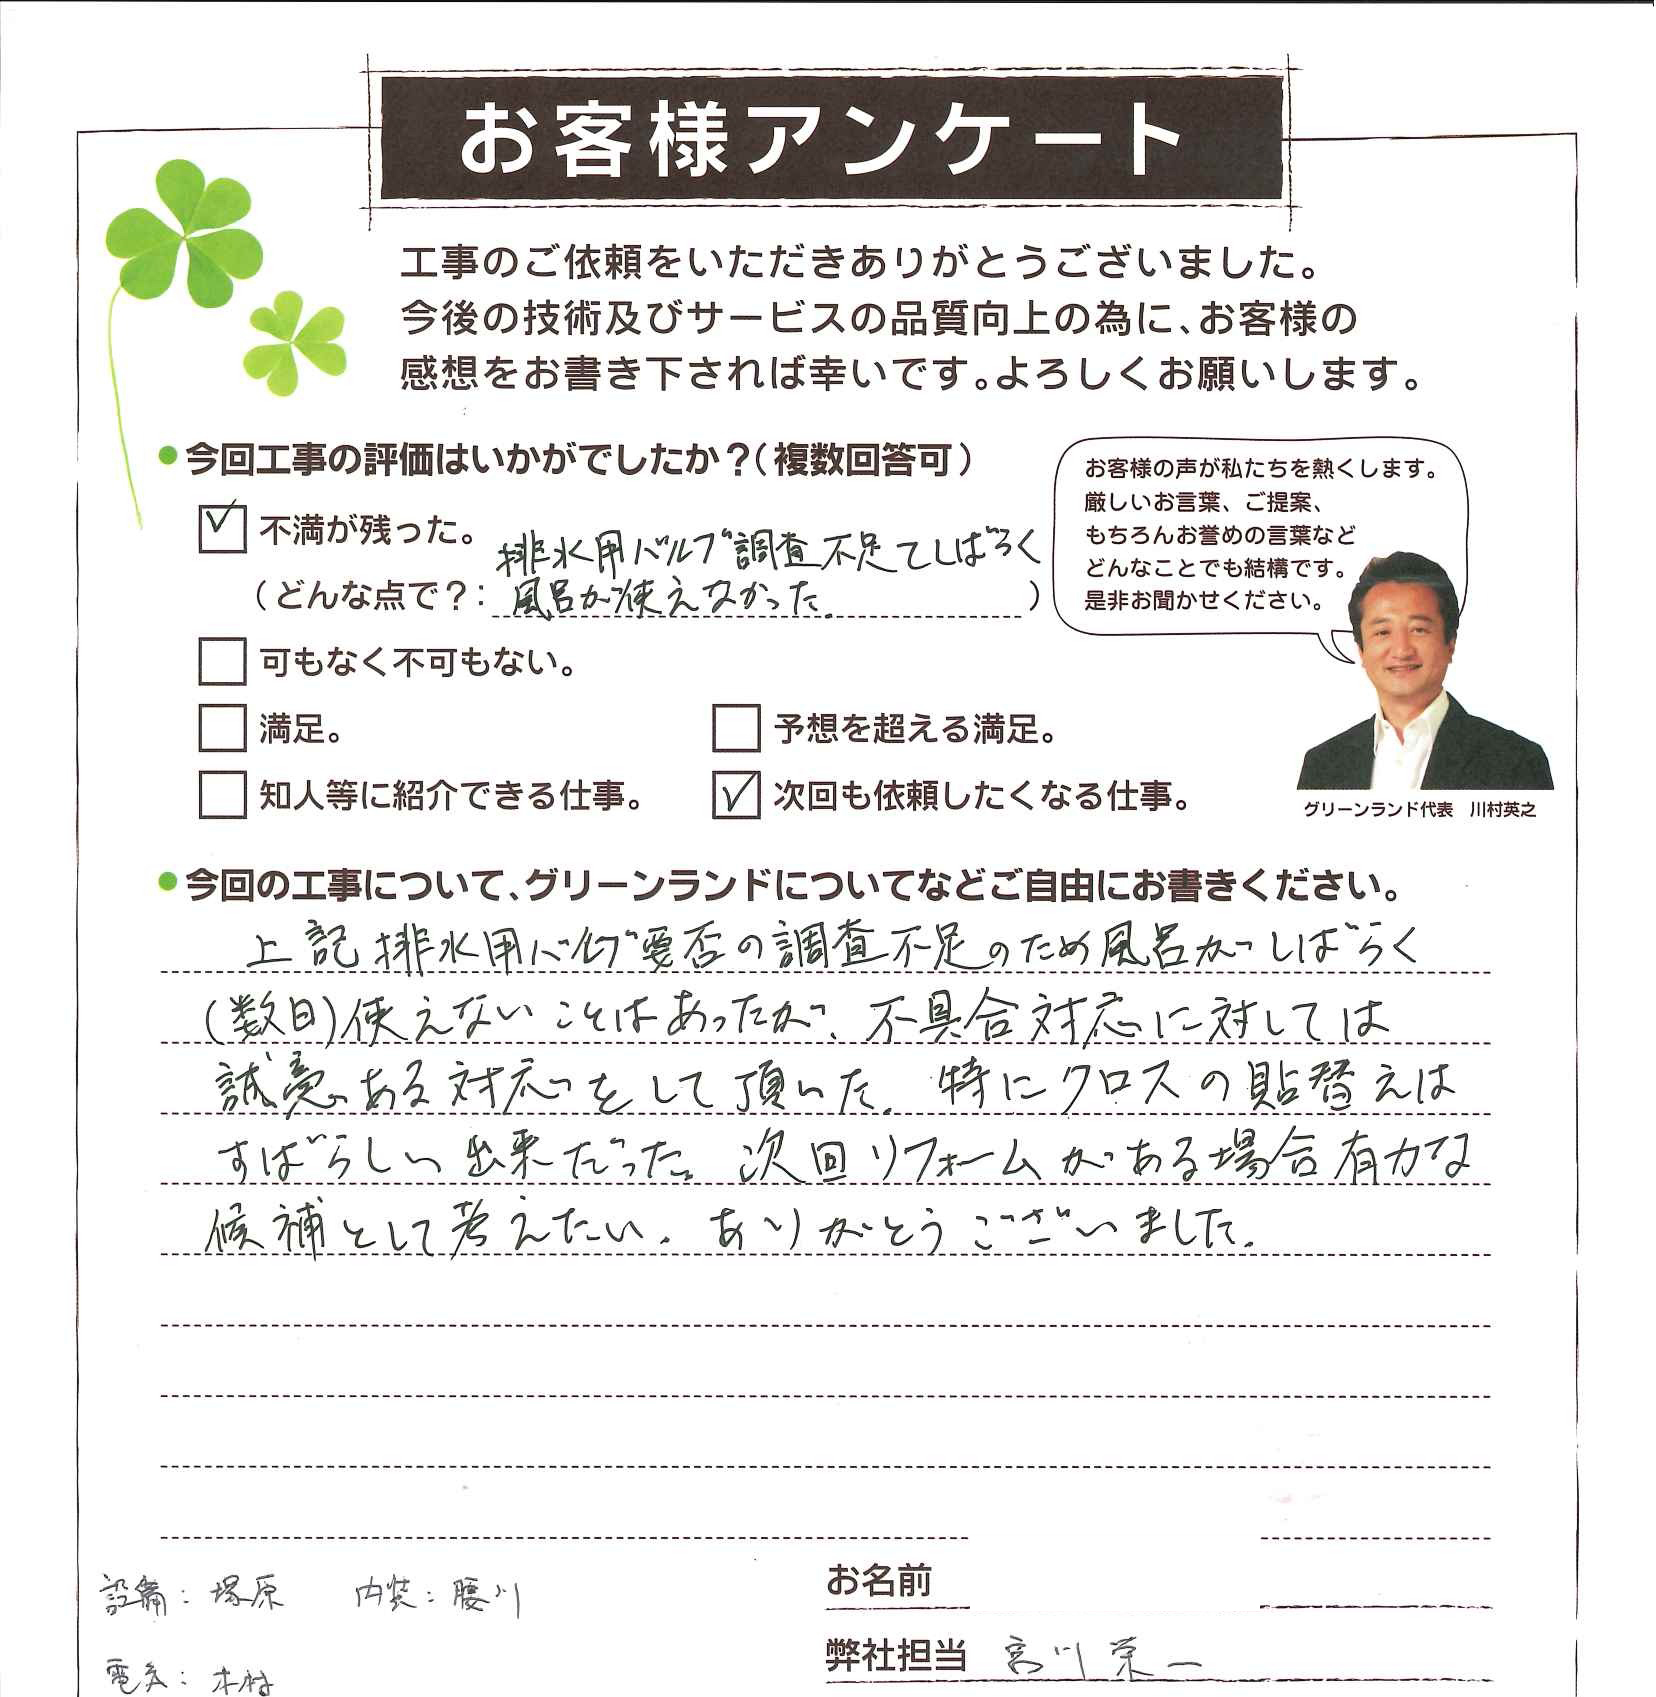 お客様アンケート
工事のご依頼をいただきありがとうございました。
今後の技術及びサービスの品質向上の為に、お客様の
感想をお書き下されば幸いです。よろしくお願いします。
●今回工事の評価はいかがでしたか？（複数回答可）
お客様の声が私たちを熱くします。
厳しいお言葉、ご提案、
もちろんお誉めの言葉など
どんなことでも結構です。
是非お聞かせください。
グリーンランド代表　川村英之
不満が残った。
排水用バルブ調査不足てしばらく
（どんな点で？： 風呂が使えなかった。）
可もなく不可もない。
満足。 予想を超える満足。
知人等に紹介できる仕事。 次回も依頼したくなる仕事。
●今回の工事について、グリーンランドについてなどご自由にお書きください。
上記排水用バルブ要否の調査不足のため風呂がしばらく
(数日)使えないことはあったが、不具合対応に対しては
誠意ある対応をして頂いた。特にクロスの貼替えは
すばらしい出来だった。次回リフォームがある場合有力な
候補として考えたい。ありがとうございました。
お名前
設備：塚原　内装：腰川
弊社担当 宮川 栄一
電気：木村